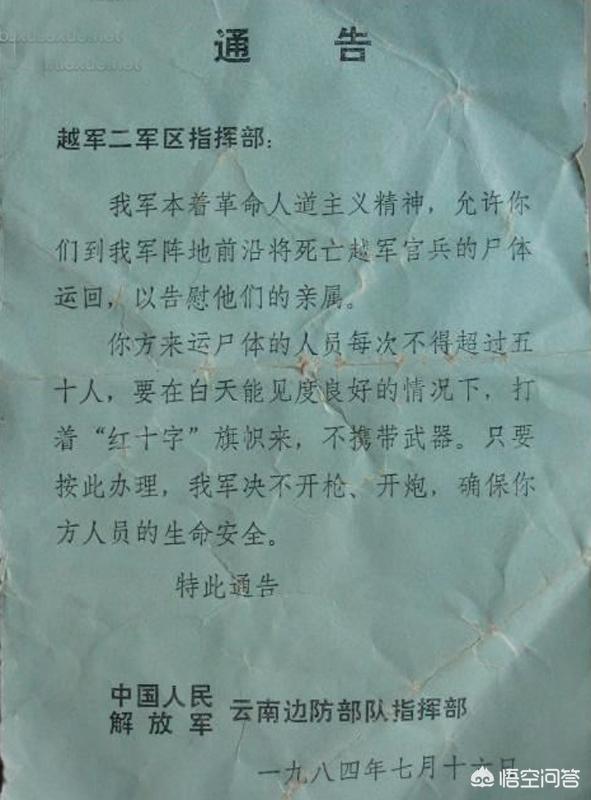 通告
越军二军区指挥部：
我军本着革命人道主义精神，允许你
们到我军阵地前沿将死亡越军官兵的尸体
运回，以告慰他们的亲属。
你方来运尸体的人员每次不得超过五
十人，要在白天能见度良好的情况下，打
着“红十字”旗帜来，不携带武器。只要
按此办理，我军决不开枪、开炮，确保你
方人员的生命安全。
特此通告
中国人民
解放军
云南边防部队指挥部
一九八四年七月十六日
悟空问答